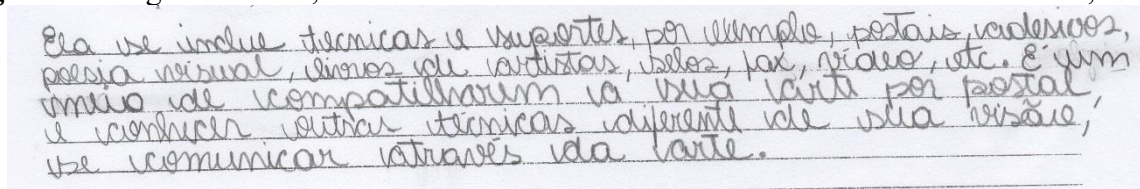 Ela se inclue técnicas e suportes, por exemplo, postais, adesivos,
poesia visual, livros de artistas, selos, fax, vídeo, etc. É um
meio de compatilharem a sua arte por postal,
e conhecer outras técnicas diferente de sua visão,
se comunicar através da arte.